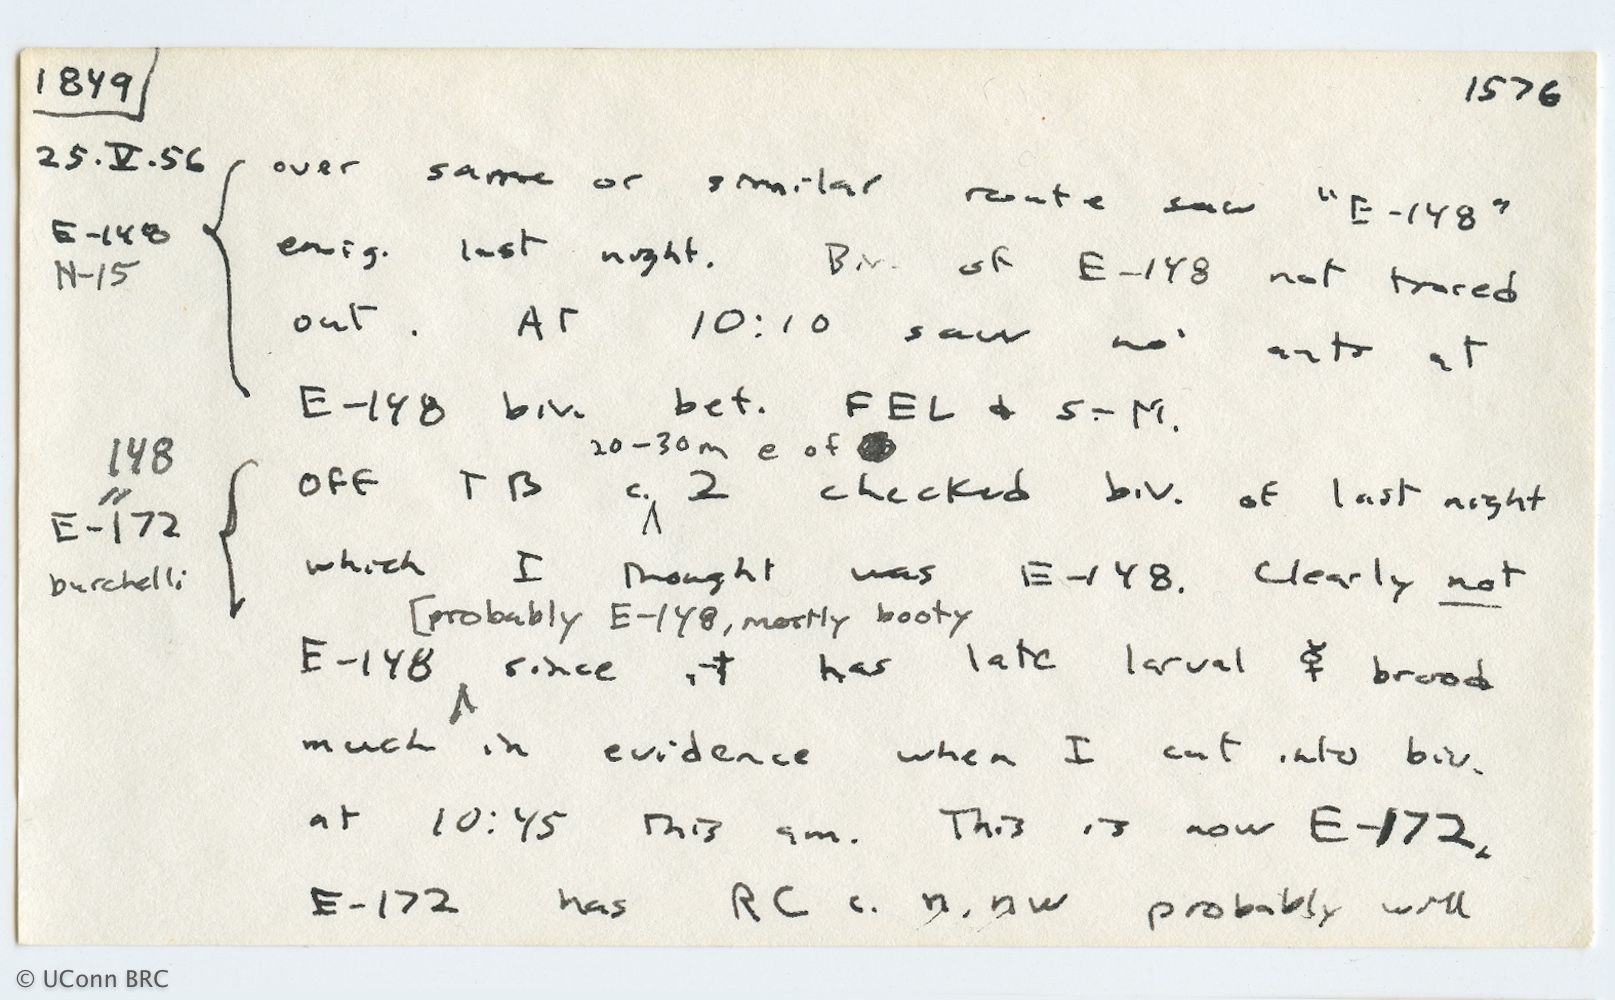 1849
1576
25.V.56
E-148
N-15
over same or similar route saw "E-148"
emig. last night. Biv. of E-148 not traced
out. At 10:10 saw no ants at
E-148 biv. bet. FEL & S-M.
20-30m e of
148
"
E-172
burchelli
Off TB c. 2 checked biv. of last night
which I thought was E-148. Clearly not
[probably E-148, mostly booty
E-148 since it has late larval ☿ brood
much in evidence when I cut into biv.
at 10:45 this am. This is now E-172.
E-172 has RC c. n, nw probably will
© UConn BRC